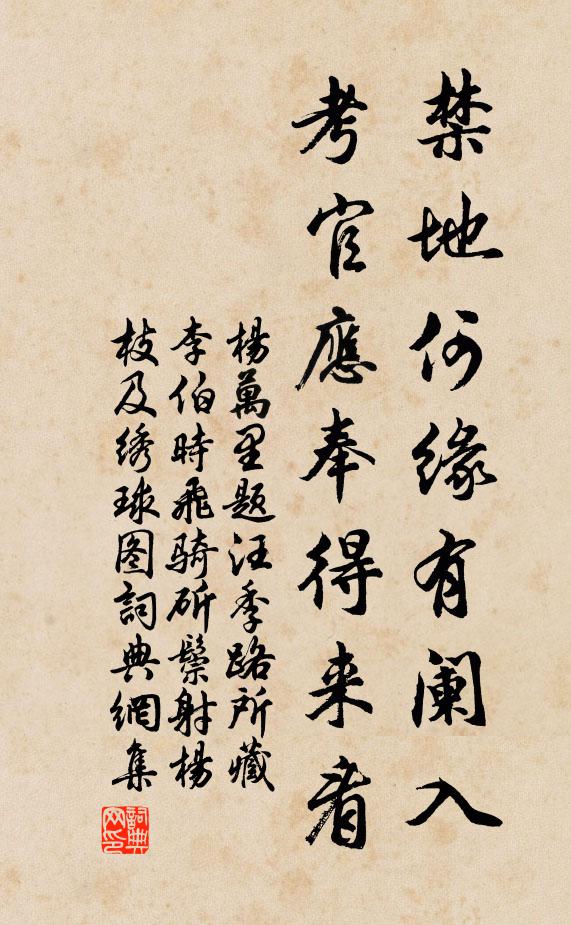 禁地何缘有阑入
考官應奉得来看
楊萬里题汪季路所藏
李伯時飛骑斫鬃射楊
枝及绣球图詞典網集
詞典
网印